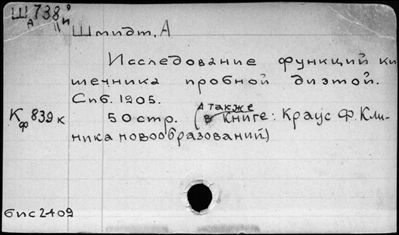 Ш 738
А и
Шмидт, А
Исследование функций ки-
шечника пробной диэтой.
Спб. 1905.
а также
К ф 839 к 50 стр. (в книге: Краус Ф. Кли-
ника новообразований)
бис 2409